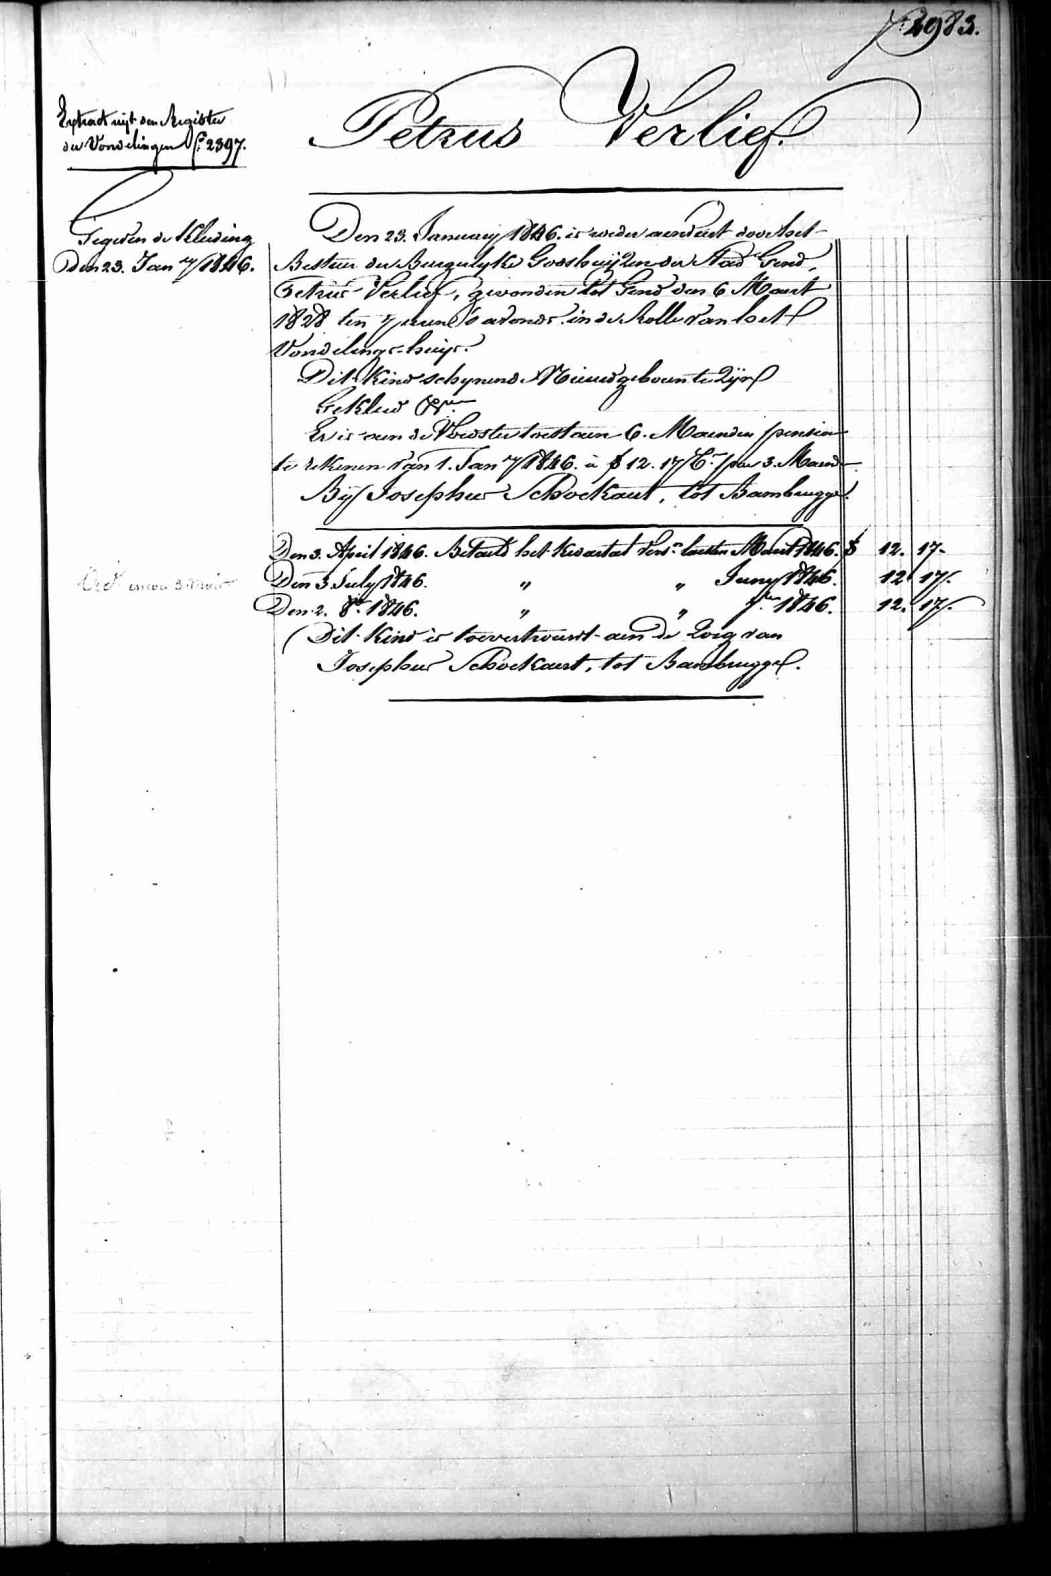 f° 2983.
Petrus Verlief.
Extract uyt den Register
der Vondelingen f° 2397.
Gegeven de Kleeding
Den 23. Jan ry 1846.
Den 23. January 1846. is weder aenveert door het
Bestuer der Burgerlyke Godshuyzen der Stad Gend,
Petrus Verlief, gevonden tot Gend den 6 Maert
1828 ten 7 uren 's avonds in de Rolle van het
Vondelings-huys.
Dit Kind schynende Nieuwgeboren te zyn
Gekleed &a
Er is aen de Voedster toestaen 6. Maenden pensioen
te rekenen van 1. Jan ry 1846. à 12.17 per 3. Maend
By Josephus Schockaert, tot Bambrugge.
Den 3. April 1846. Betaeld het Kwartael Pens.n laetsten Maert 1846. 12. 17-
Den 3 July 1846. " " Juny 1846. 12 17-
Den 2. 8bre 1846. " " 7bre 1846. 12. 17-
Dit Kind is toevertrouwt aen de Zorg van
Josephus Schockaert, tot Bambrugge.